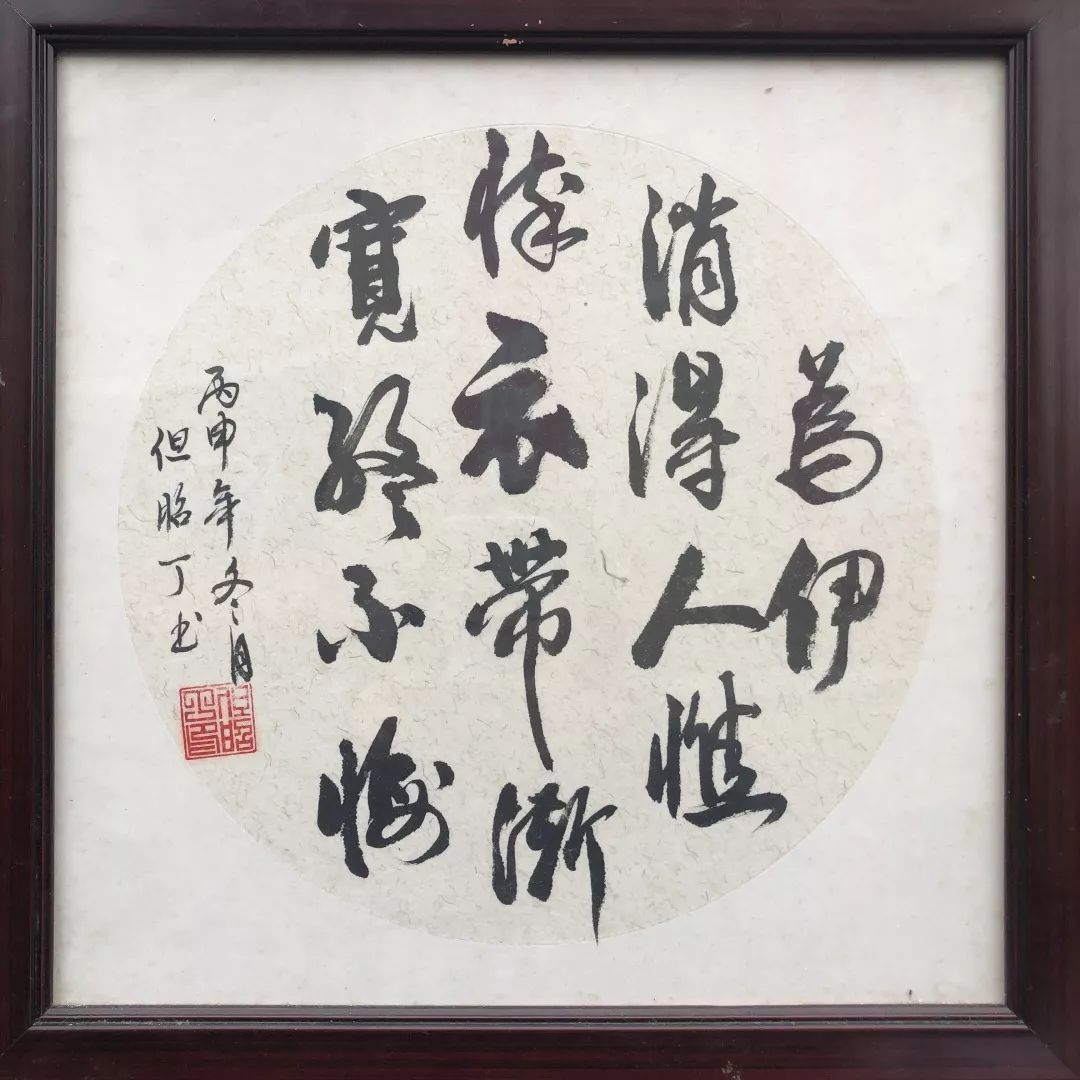 為伊
消得人憔
悴衣帶漸
寬終不悔
丙申年冬月
但昭丁书